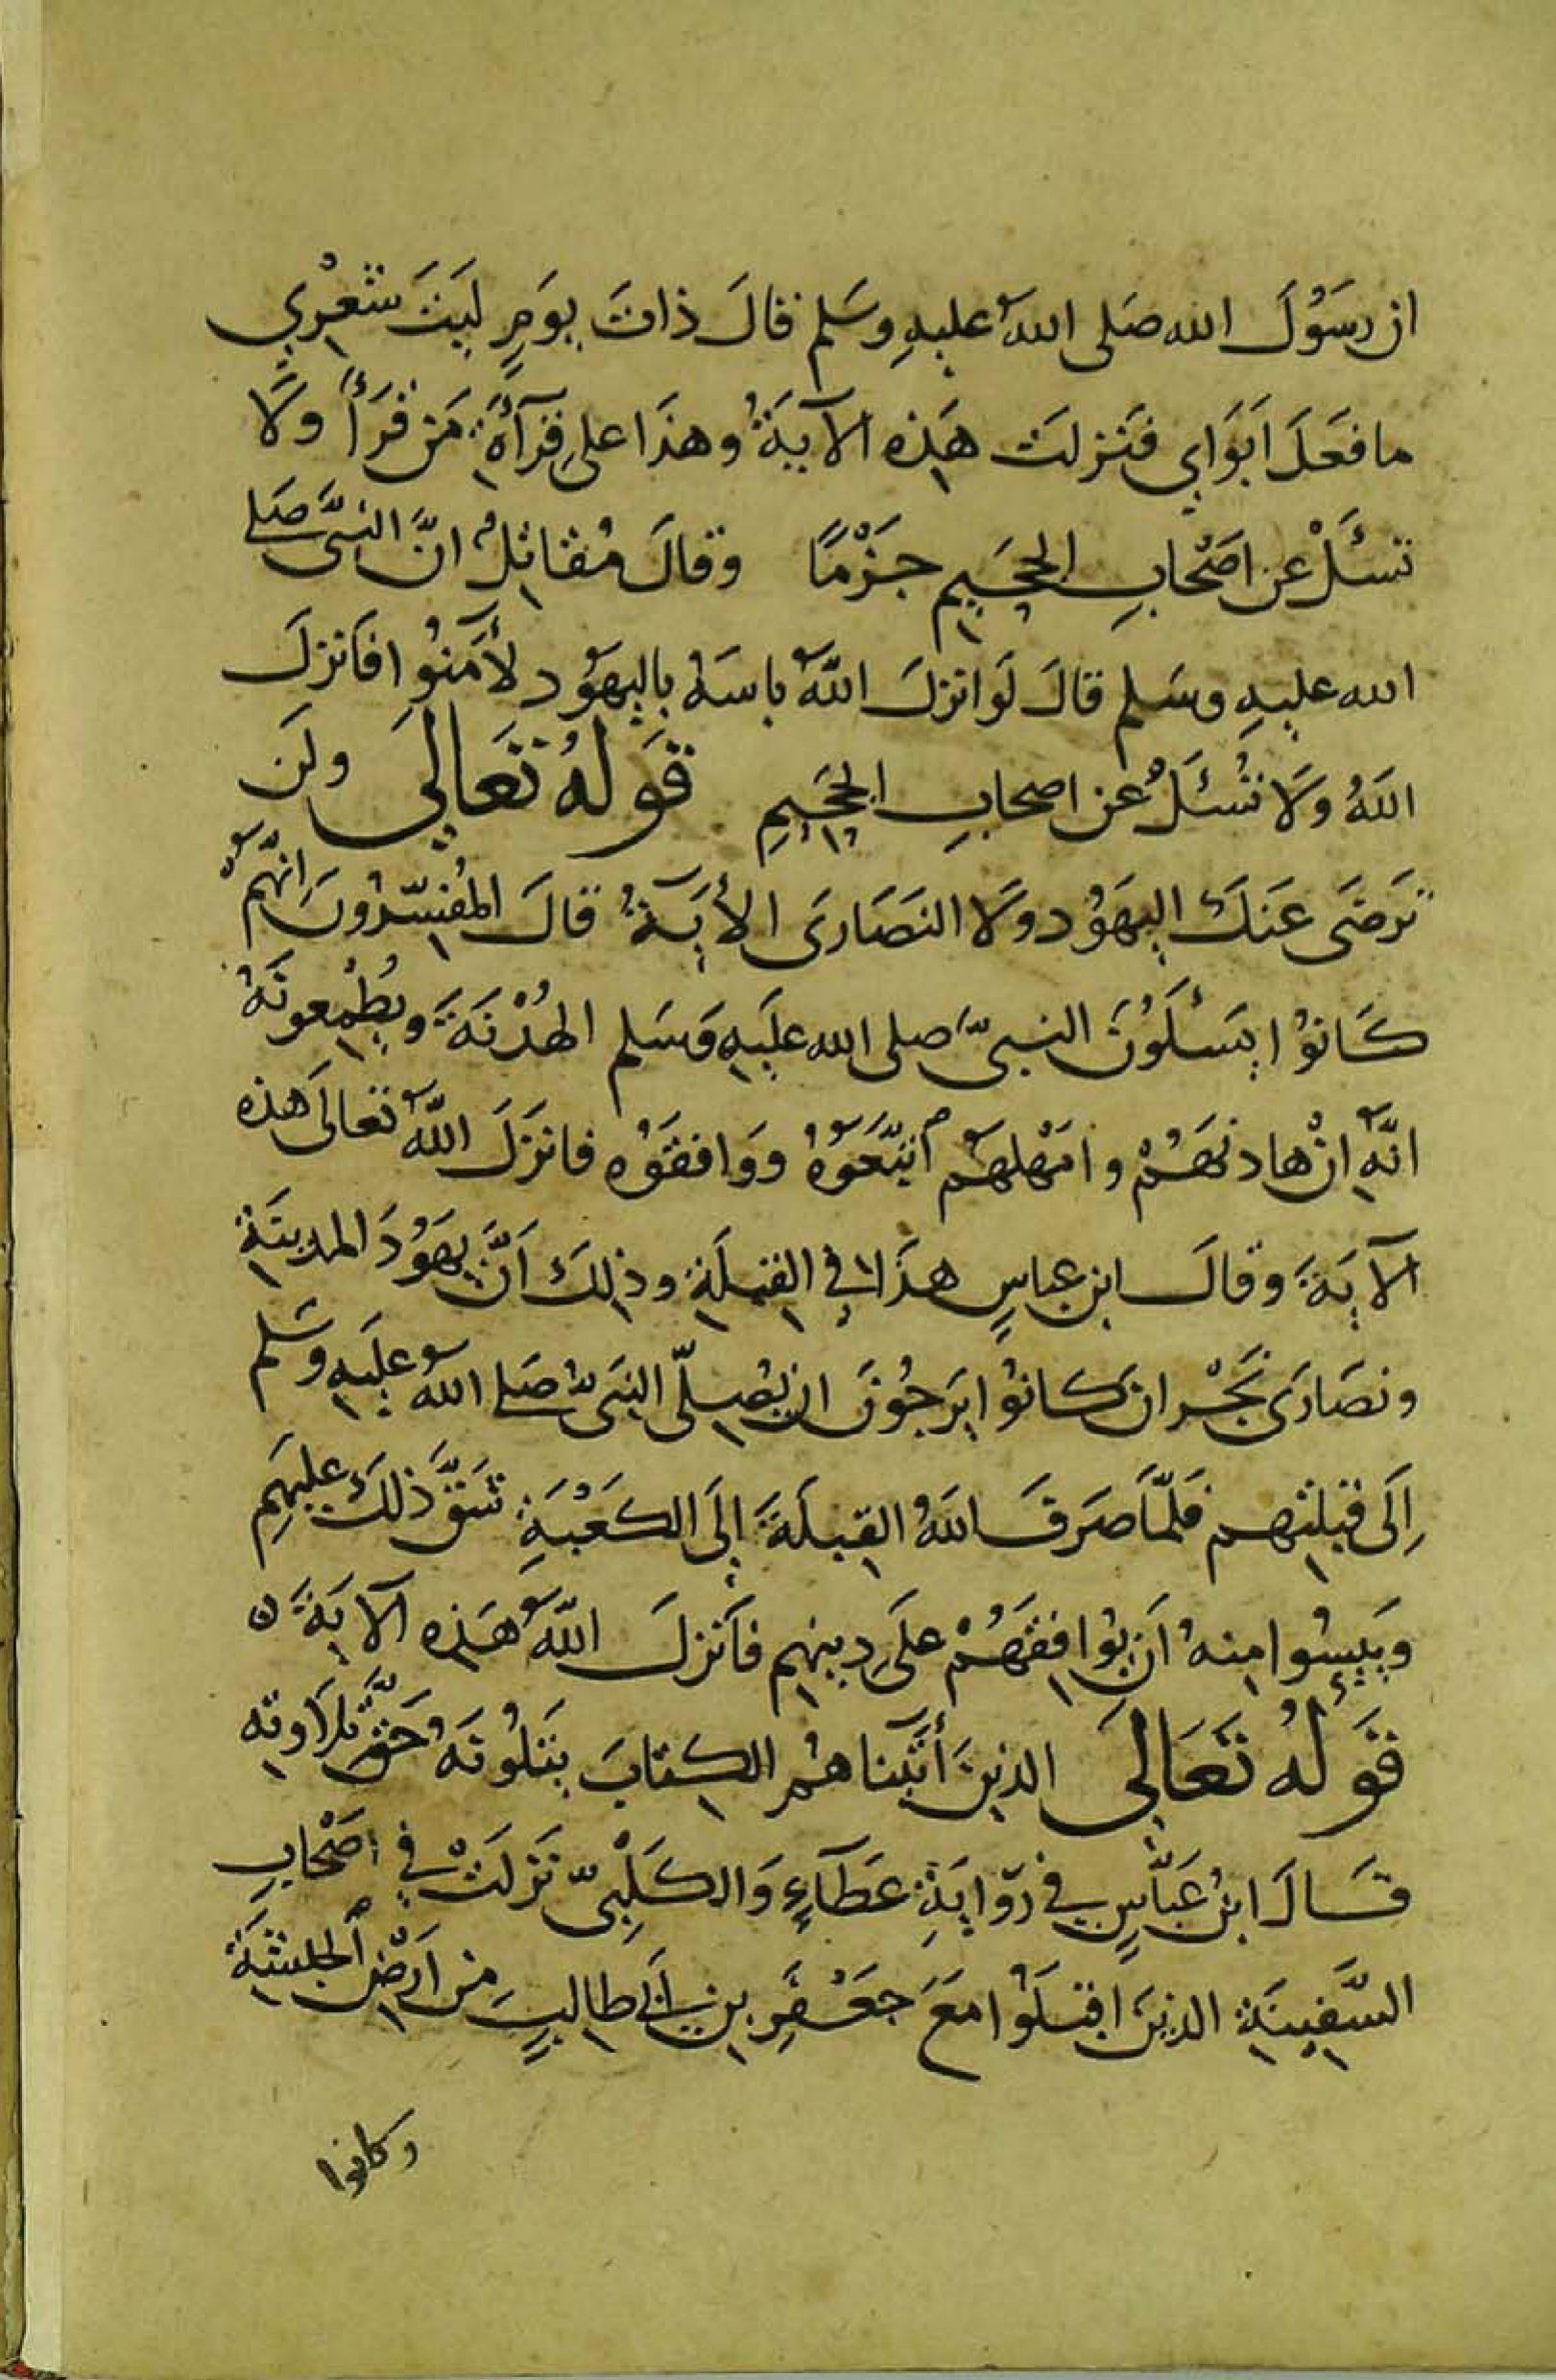 ان رسَوُلَ الله صَلى اللهُ عليهِ وسَلم قالَ ذاتَ يوَمٍ ليَتَ شعْرِي
ما فعَلَ ابَوَاي فنَزلَت هَذِه الآيَةُ وهذَا على قِرآةِ مَن قرَأَ ولَا
تسئَلْ عن اصَحْابِ الجحَيِم جَزْمًا وقالَ مُقاتِلُ انَّ النبىَّ صَلى
الله عليهِ وسَلم قالَ لَو انزلَ اللهُ باسَهُ باليهَوُد لأمَنوُا فانزلَ
اللهُ ولَا تُسْئَلُ عن اصحابِ الجحَيمِ قوَلهُ تعَالىَ ولَن
ترَضَى عَنكَ اليهَوُد ولَا النصَارَى الأيَةُ قالَ المفُسّرُونَ انهَّم
كَانوُا يسَئلَوُنَ النبىَّ صلى الله عليَهِ وَسَلم الهُدْنَةَ ويُطْمِعونَهُ
انَّه انْ هادنهَمُ وامَهْلهَم اتبَّعَوُهُ ووَافقَوُه فانزَلَ اللهُ تعالىَ هذه
الآيَةَ وقالَ ابن عباسٍ هذَا في القبِلَةِ وذلِكَ اَنَّ يهَوُدَ المدينَةِ
ونصَارَى نجَرْان كانوُا يرَجوُنَ ان يُصلّى النبَىُّ صَلى اللهُ عليَهِ وسَلم
اِلَى قبلتِهم فلَمّا صَرَفَ اللهُ القِبلَةَ إلَى الكعَبْةِ شَقَّ ذلكَ عليهَمِ
ويَئِسُوا مِنهُ اَن يوُافقهَمُْ علَى دِينهِم فاَنزلَ اللهُ هَذِه الآيَةَ ن
قوَلهُ تعَالىَ الذينَ أتَيَناهمُ الكِتابَ يتلُونَهُ حَقَّ تِلاَوته
قَالَ ابنُ عَبَّاسٍ في رِوَايَةِ عَطَآءٍ وَالكَلْبِىّ نزَلَتْ في اصَحْابِ
السَّفِينَةِ الذينَ اقبَلوُا معَ جَعْفَرِ بنِ ابَي طالبٍ مِن ارَضِ الحبشَةِ
وكانوا